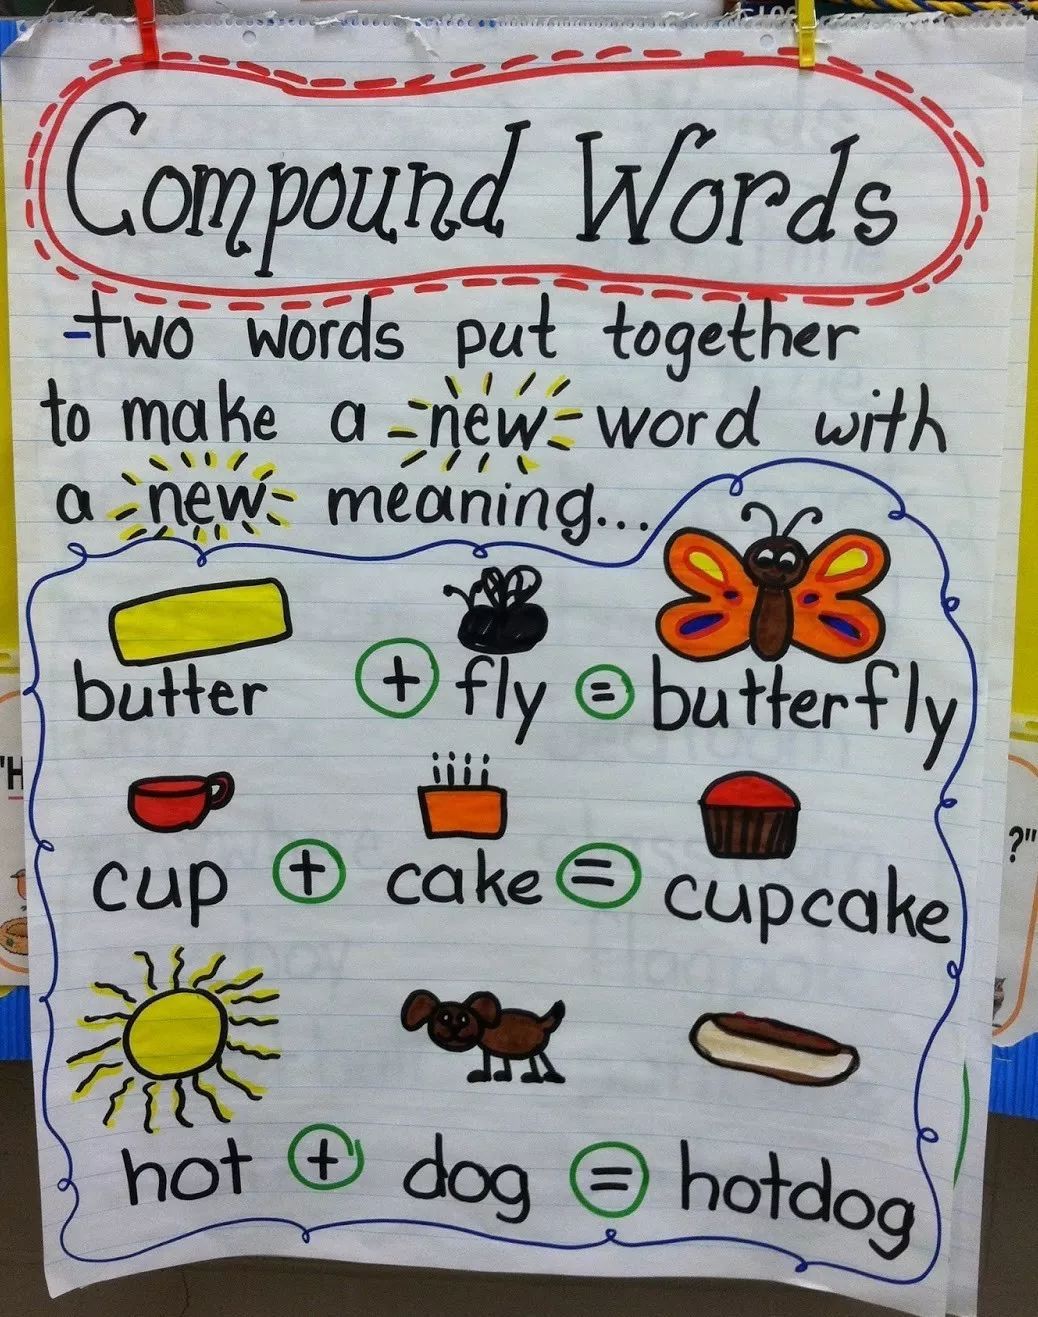 Compound Words
-two words put together
to make a new word with
a new meaning...
butter + fly = butterfly
cup + cake = cupcake
hot + dog = hotdog
"H
?"